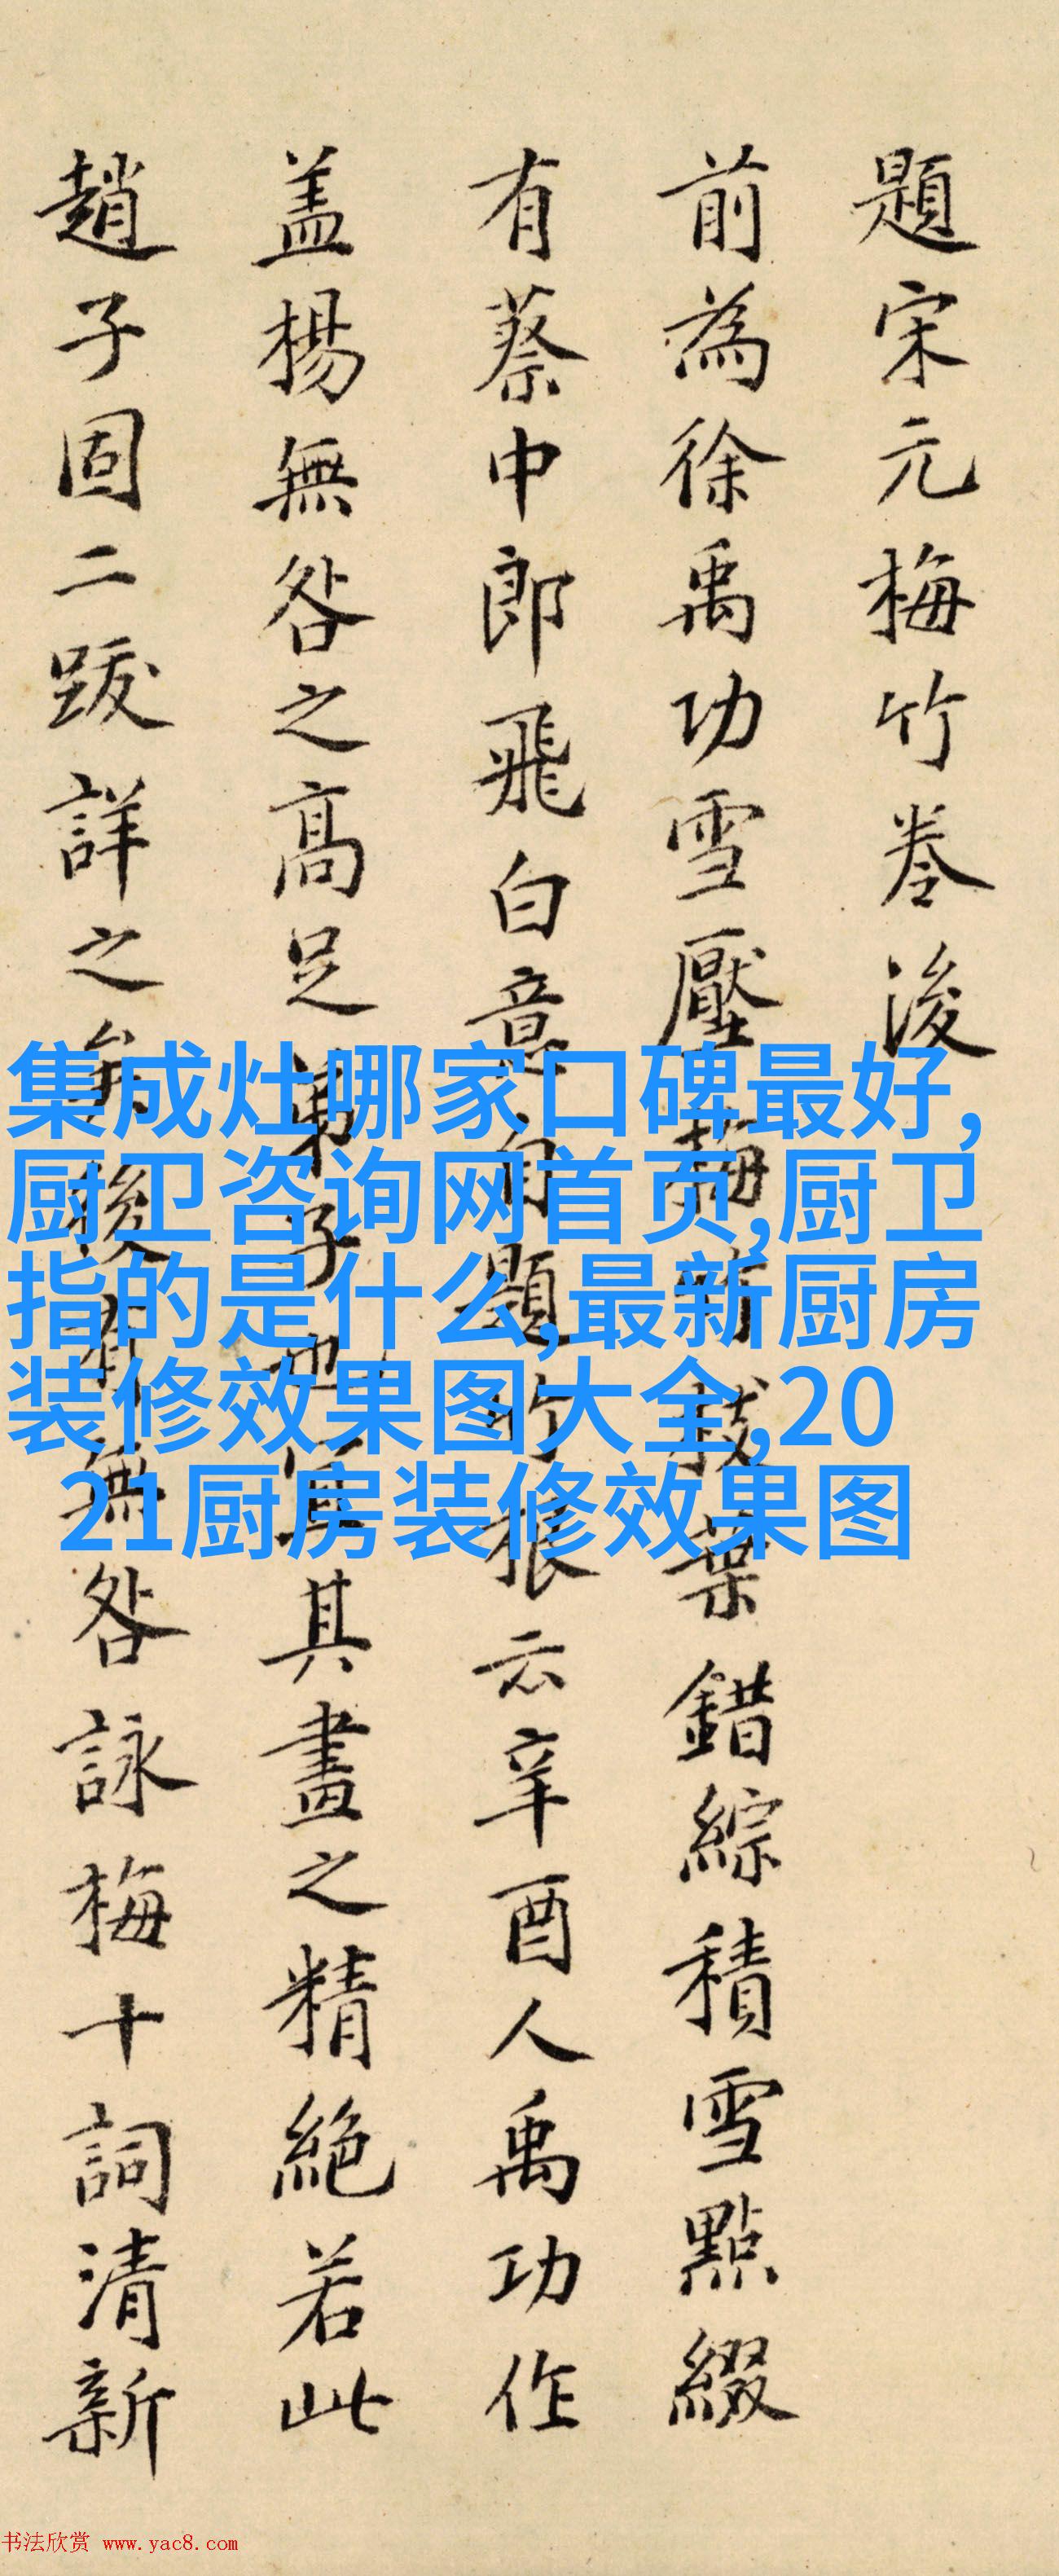 題宋元梅竹卷後
前為徐禹功雪壓梅竹枝葉錯綜積雪點綴
有蔡中郎飛白意自題竹根云辛酉人禹功作
盖楊無咎之高足弟子也宜其畫之精絕若此
趙子固二跋詳之後有無咎詠梅十詞清新
集成灶哪家口碑最好,
厨卫咨询网首页,厨卫
指的是什么,最新厨房
装修效果图大全,20
21厨房装修效果图
书法欣赏 www.yac8.com